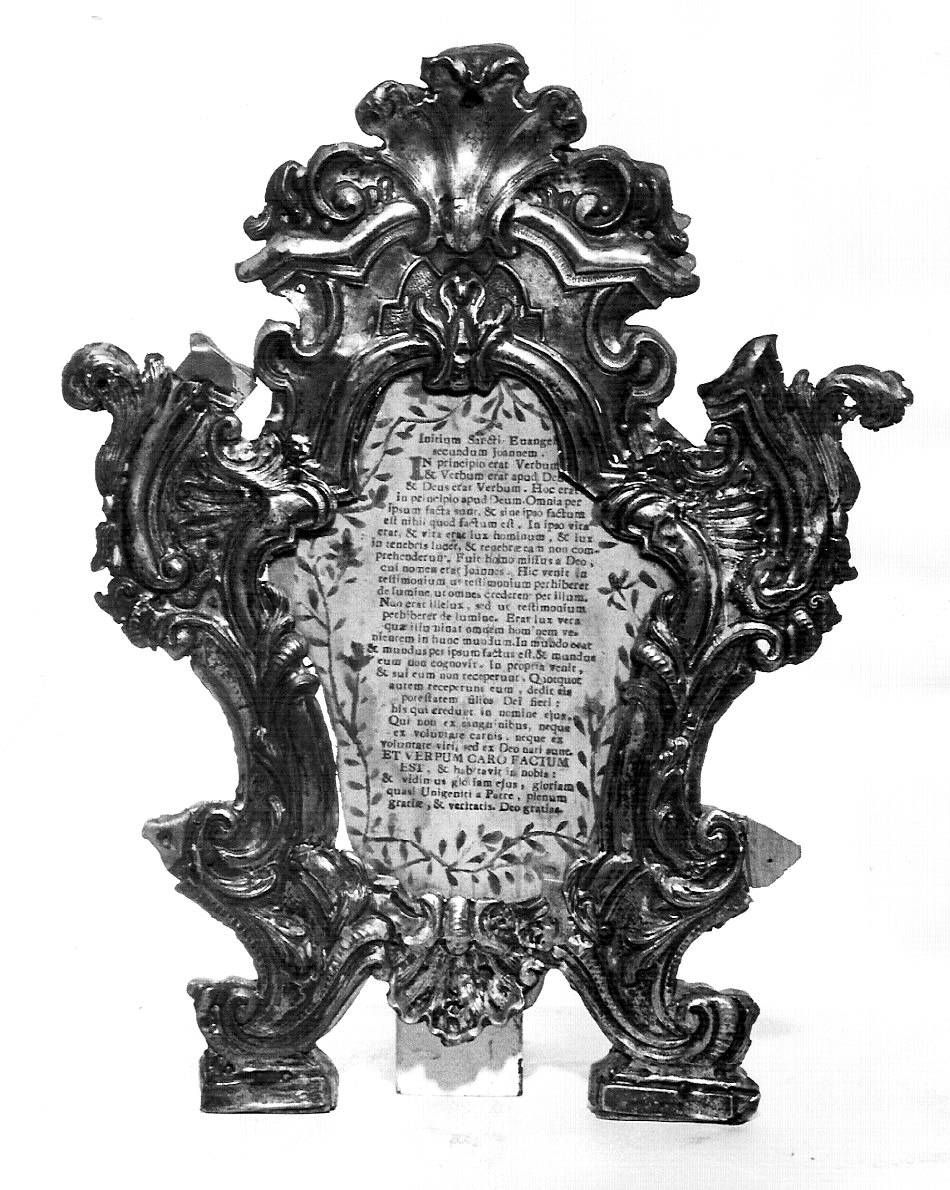 Initium Sancti Euangel
secundum Joannem.
IN principio erat Verbum
& Verbum erat apud De
& Deus erat Verbum. Hoc erat
in principio apud Deum. Omnia per
ipsum facta sunt, & sine ipso factum
est nihil quod factum est. In ipso vita
erat, & vita erat lux hominum, & lux
in tenebris lucet, & tenebræ eam non com-
prehenderunt. Fuit homo missus a Deo,
cui nomen erat Joannes. Hic venit in
testimonium ut testimonium perhiberet
de lumine, ut omnes crederent per illum.
Non erat ille lux, sed ut testimonium
perhiberet de lumine. Erat lux vera
quæ illuminat omnem hominem ve-
nientem in hunc mundum. In mundo erat
& mundus per ipsum factus est. & mundus
eum non cognovit. In propria venit,
& sui eum non receperunt. Quotquot
autem receperunt eum, dedit eis
potestatem filios Dei fieri:
his qui credunt in nomine ejus.
Qui non ex sanguinibus, neque
ex voluntate carnis, neque ex
voluntate viri, sed ex Deo nati sunt.
ET VERPUM CARO FACTUM
EST, & habitavit in nobis:
& vidimus gloriam ejus, gloriam
quasi Unigeniti a Patre, plenum
gratiæ, & veritatis. Deo gratias.